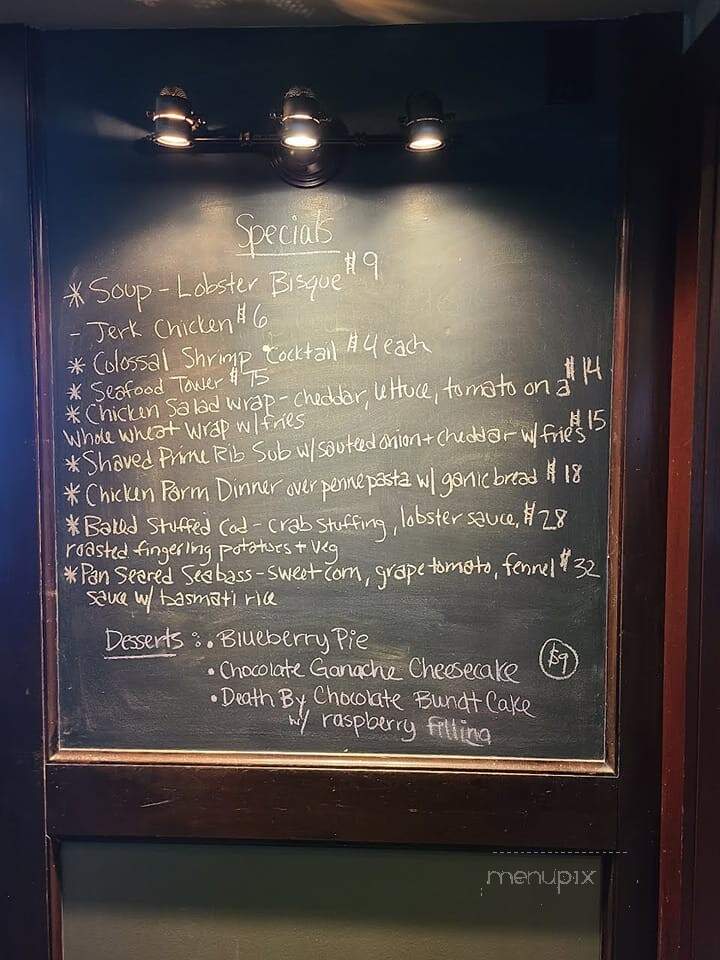 Specials
* Soup - Lobster Bisque $9
- Jerk Chicken $6
* Colossal Shrimp Cocktail $4 each
* Seafood Tower $75
* Chicken Salad wrap - cheddar, lettuce, tomato on a $14
whole wheat wrap w/fries
* Shaved Prime Rib Sub w/sauteed onion + cheddar - w/fries $15
* Chicken Parm Dinner over penne pasta w/ garlic bread $18
* Baked Stuffed Cod - crab stuffing, lobster sauce, $28
roasted fingerling potatoes + veg
* Pan Seared Seabass - sweet corn, grape tomato, fennel $32
sauce w/ basmati rice
Desserts : • Blueberry Pie
• Chocolate Ganache Cheesecake $9
• Death By Chocolate Bundt Cake
w/ raspberry filling
menupix